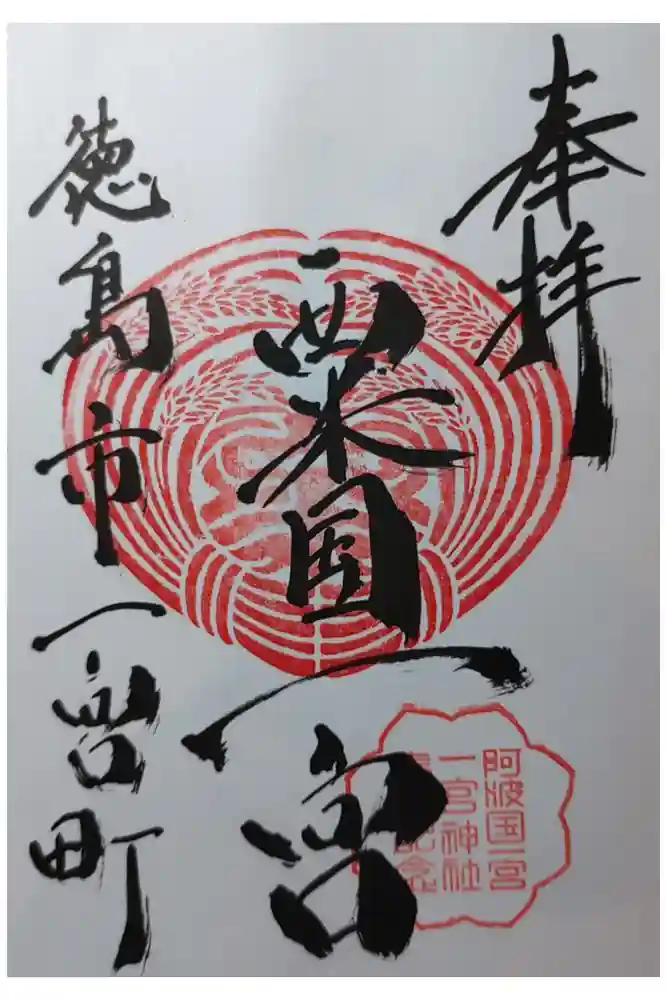 奉拝
粟国一宮
徳島市一宮町
阿波国一宮
一宮神社
記念